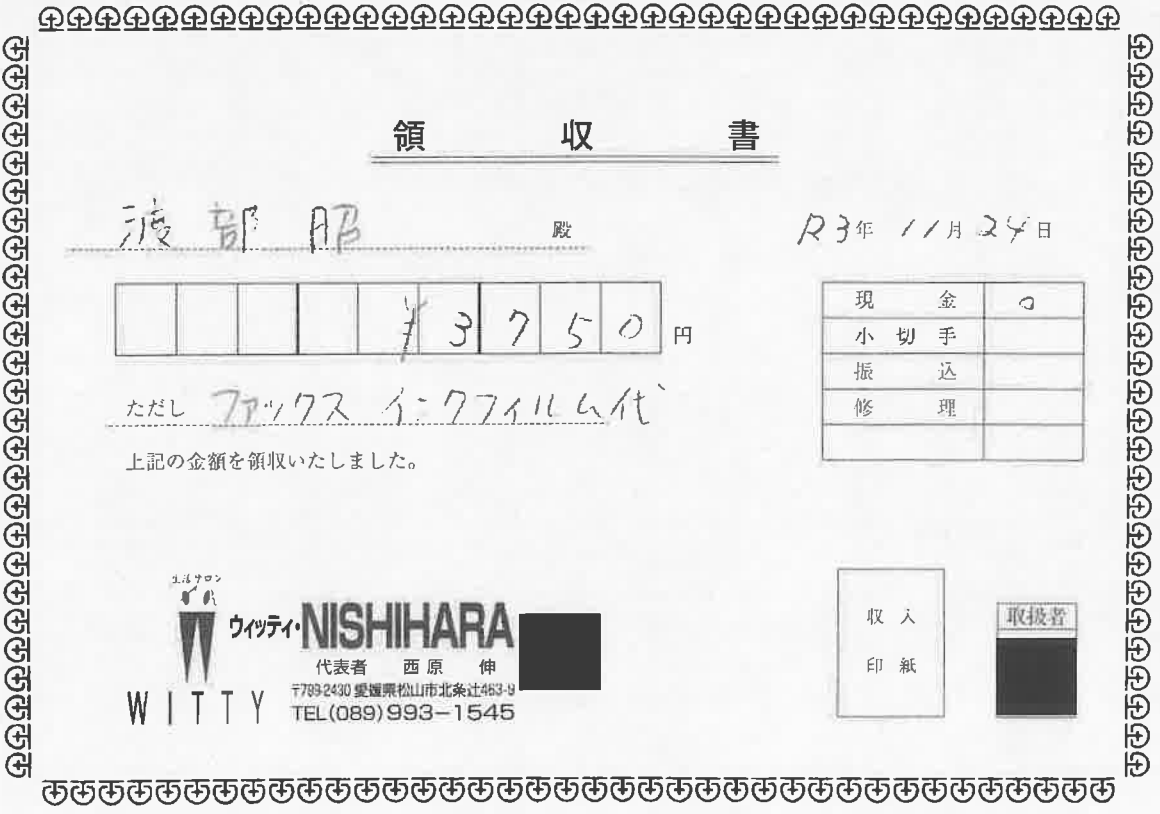 領収書
渡部昭 殿
R3年 11月 24日
¥3750円
現金 ○
小切手
振込
修理
ただし ファックス インクフィルム代
上記の金額を領収いたしました。
生活サロン
ウィッティ・NISHIHARA
代表者 西原 伸
〒799-2430 愛媛県松山市北条辻463-9
WITTY
TEL(089)993-1545
収入
印紙
取扱者